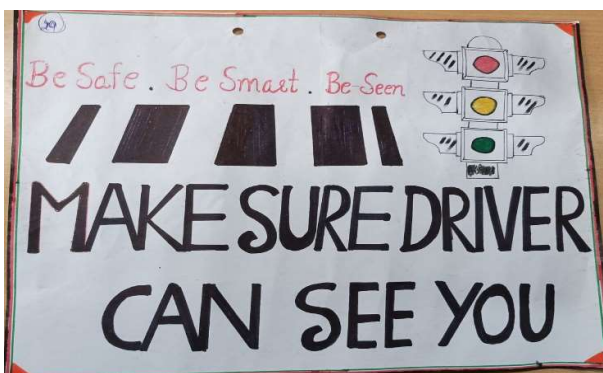 29
Be Safe. Be Smart. Be Seen
MAKE SURE DRIVER
CAN SEE YOU